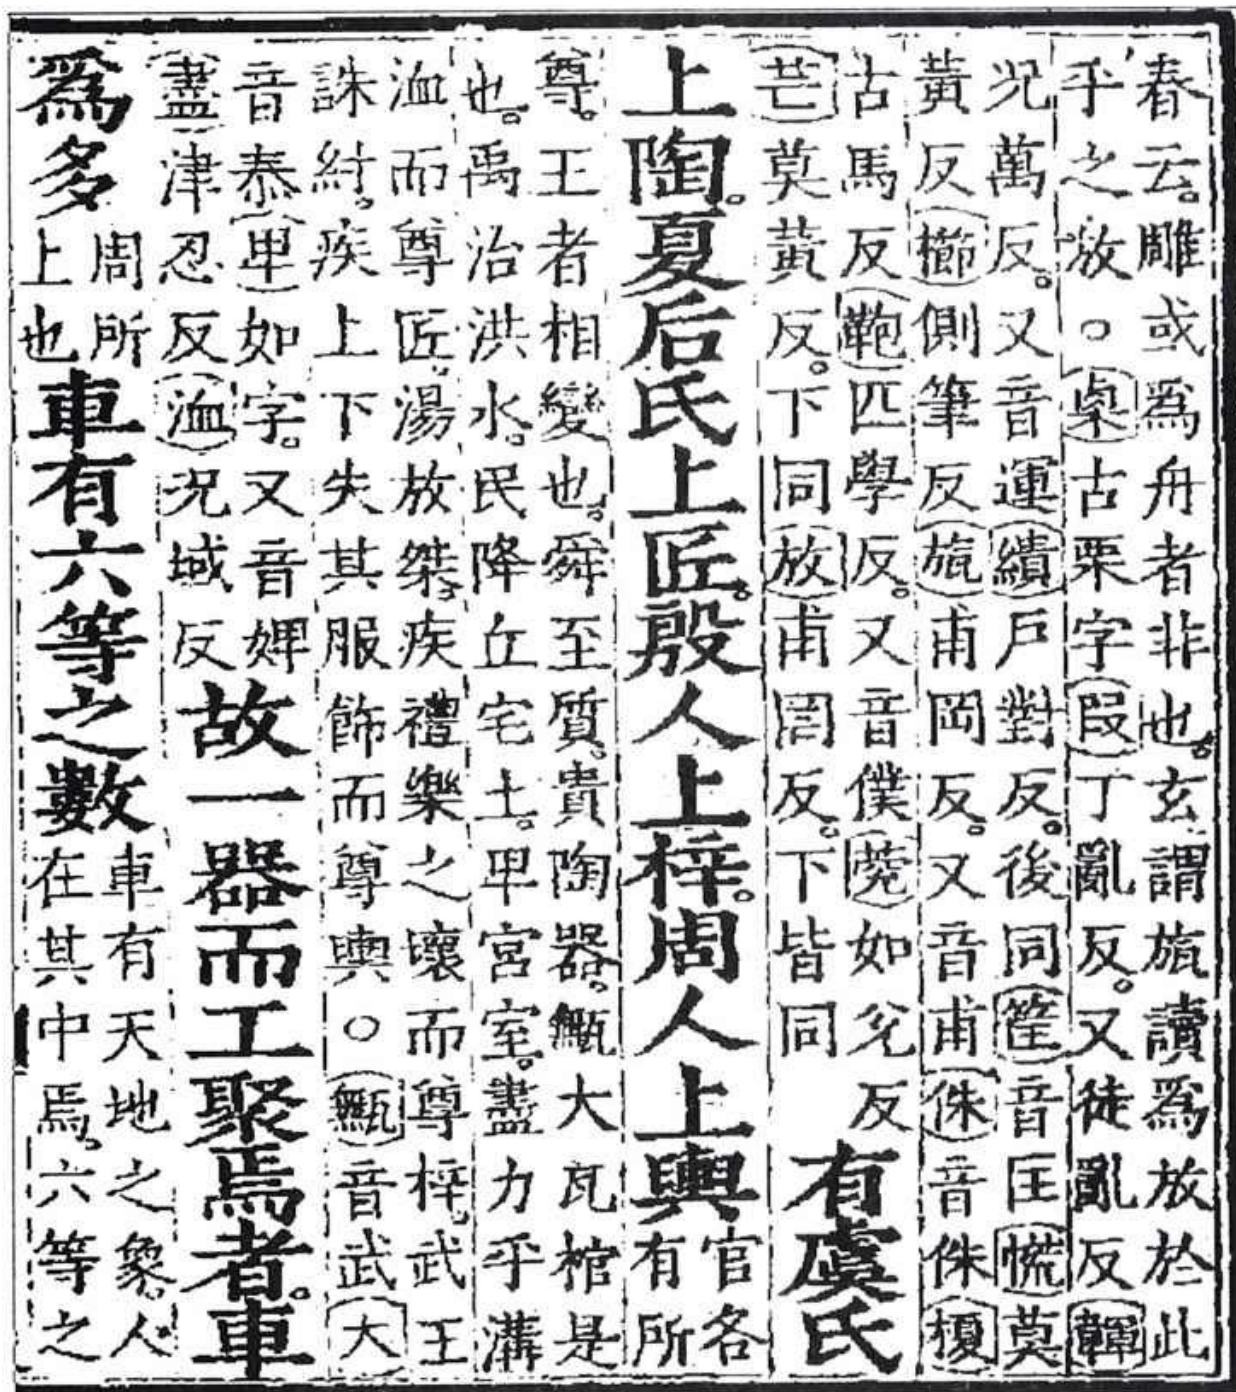 春云。雕或爲舟者非也。玄謂旊讀爲放於此
乎之放○㮚古栗字段丁亂反。又徒亂反韗
况萬反。又音運繢戶對反。後同筐音匡㡆莫
黃反櫛側筆反旊甫岡反。又音甫侏音侏榎
古馬反鞄匹學反。又音僕㼱如兖反
芒莫黃反。下同放甫罔反。下皆同
有虞氏
上陶。夏后氏上匠。殷人上梓。周人上輿
官各
有所
尊。王者相變也。舜至質。貴陶器。甒大瓦棺是
也。禹治洪水。民降丘宅土。卑宮室。盡力乎溝
洫而尊匠。湯放桀。疾禮樂之壞而尊梓。武王
誅紂。疾上下失其服飾而尊輿○甒音武大
音泰卑如字。又音婢
盡津忍反洫况域反
故一器而工聚焉者。車
爲多
周所
上也
車有六等之數
車有天地之象。人
在其中焉。六等之